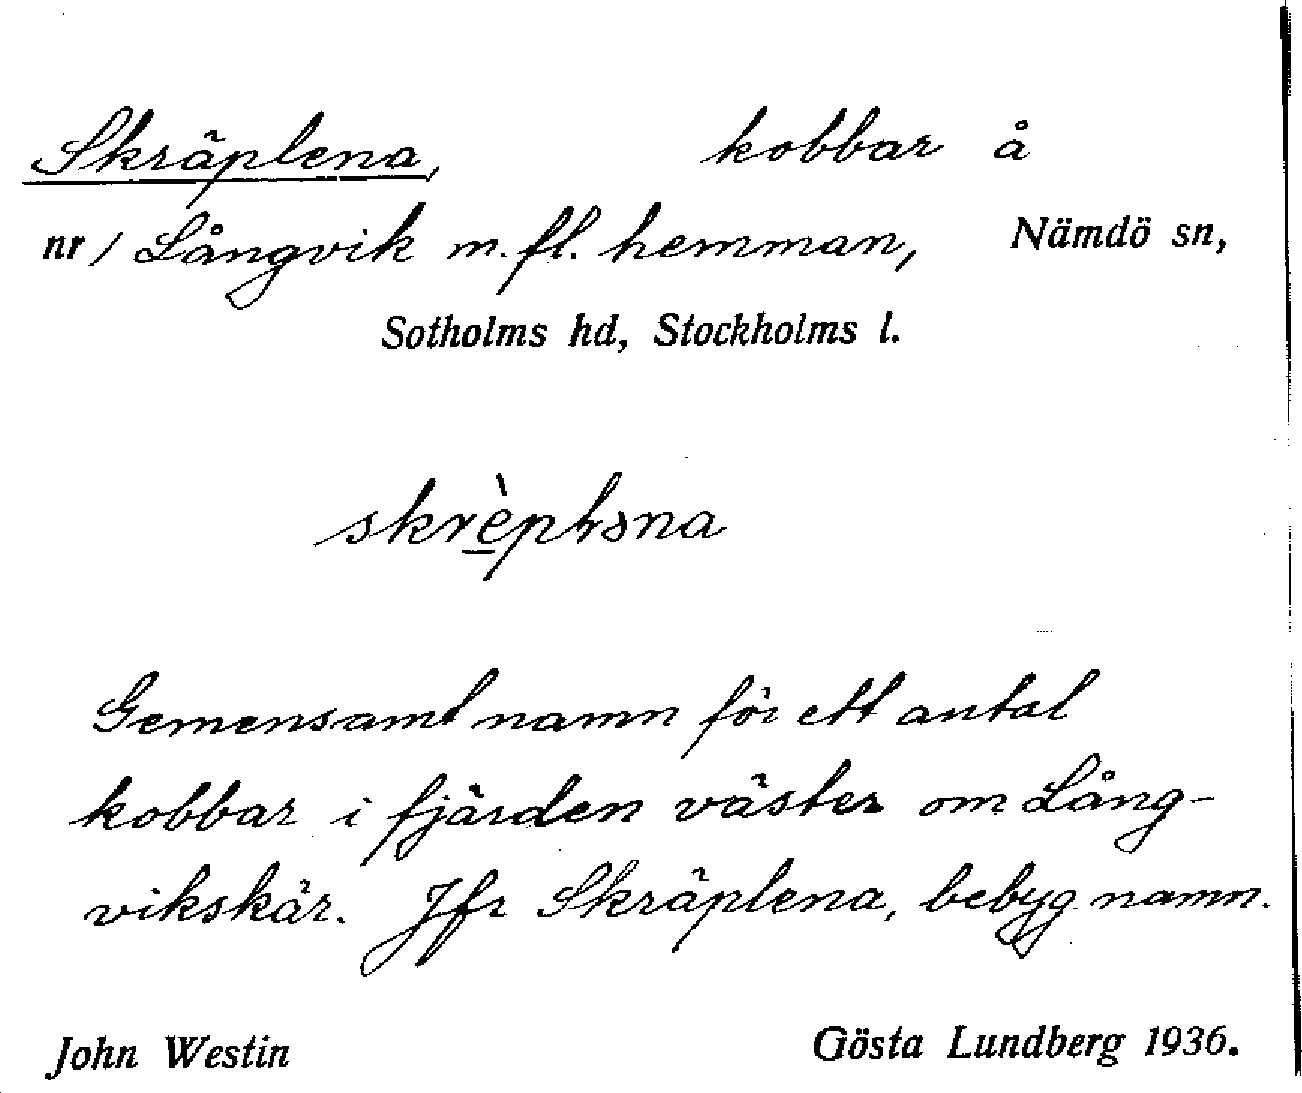 Skräplena, kobbar å
nr / Långvik m.fl. hemman, Nämdö sn,
Sotholms hd, Stockholms l.
skrèpləna
Gemensamt namn för ett antal
kobbar i fjärden väster om Lång-
vikskär. Jfr Skräplena, bebyg namn.
John Westin Gösta Lundberg 1936.